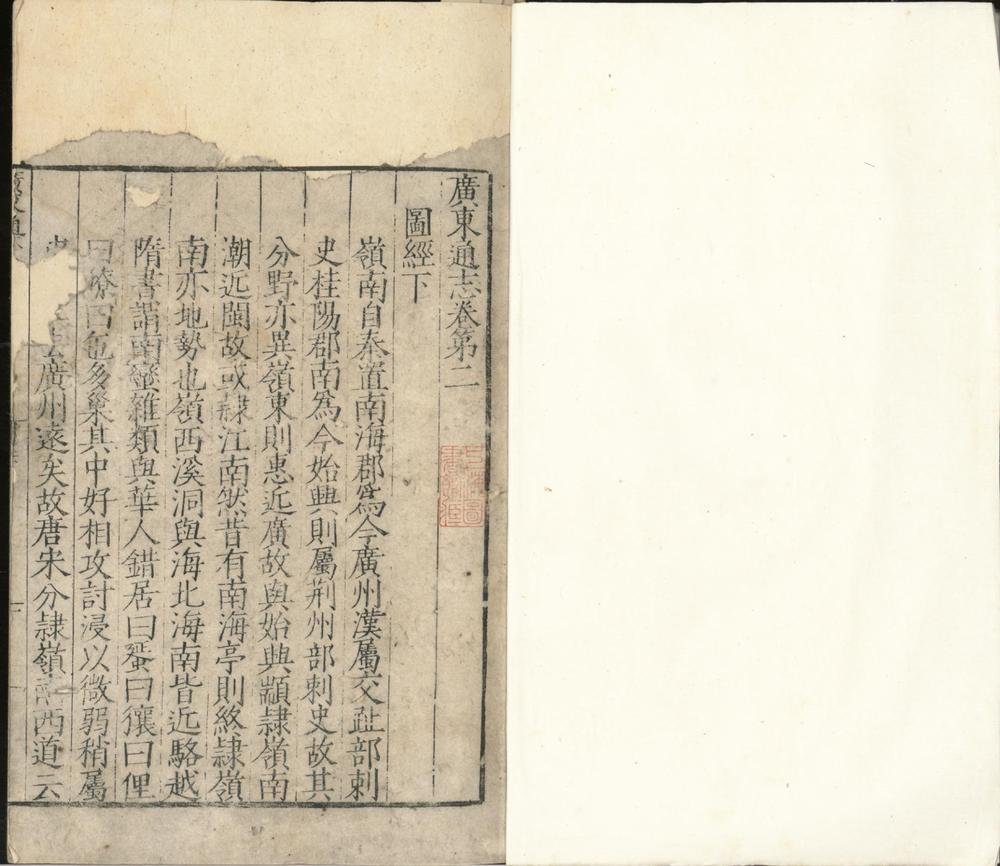 廣東通志卷第二
圖經下
嶺南自秦置南海郡爲今廣州漢屬交趾部刺
史桂陽郡南爲今始興則屬荆州部刺史故其
分野亦異嶺東則惠近廣故與始興顓隸嶺南
潮近閩故或隸江南然昔有南海亭則終隸嶺
南亦地勢也嶺西溪洞與海北海南皆近駱越
隋書謂南蠻雜類與華人錯居曰蜑曰獽曰俚
曰獠曰㐌多巢其中好相攻討浸以微弱稍屬
廣州遠矣故唐宋分隸嶺南西道云